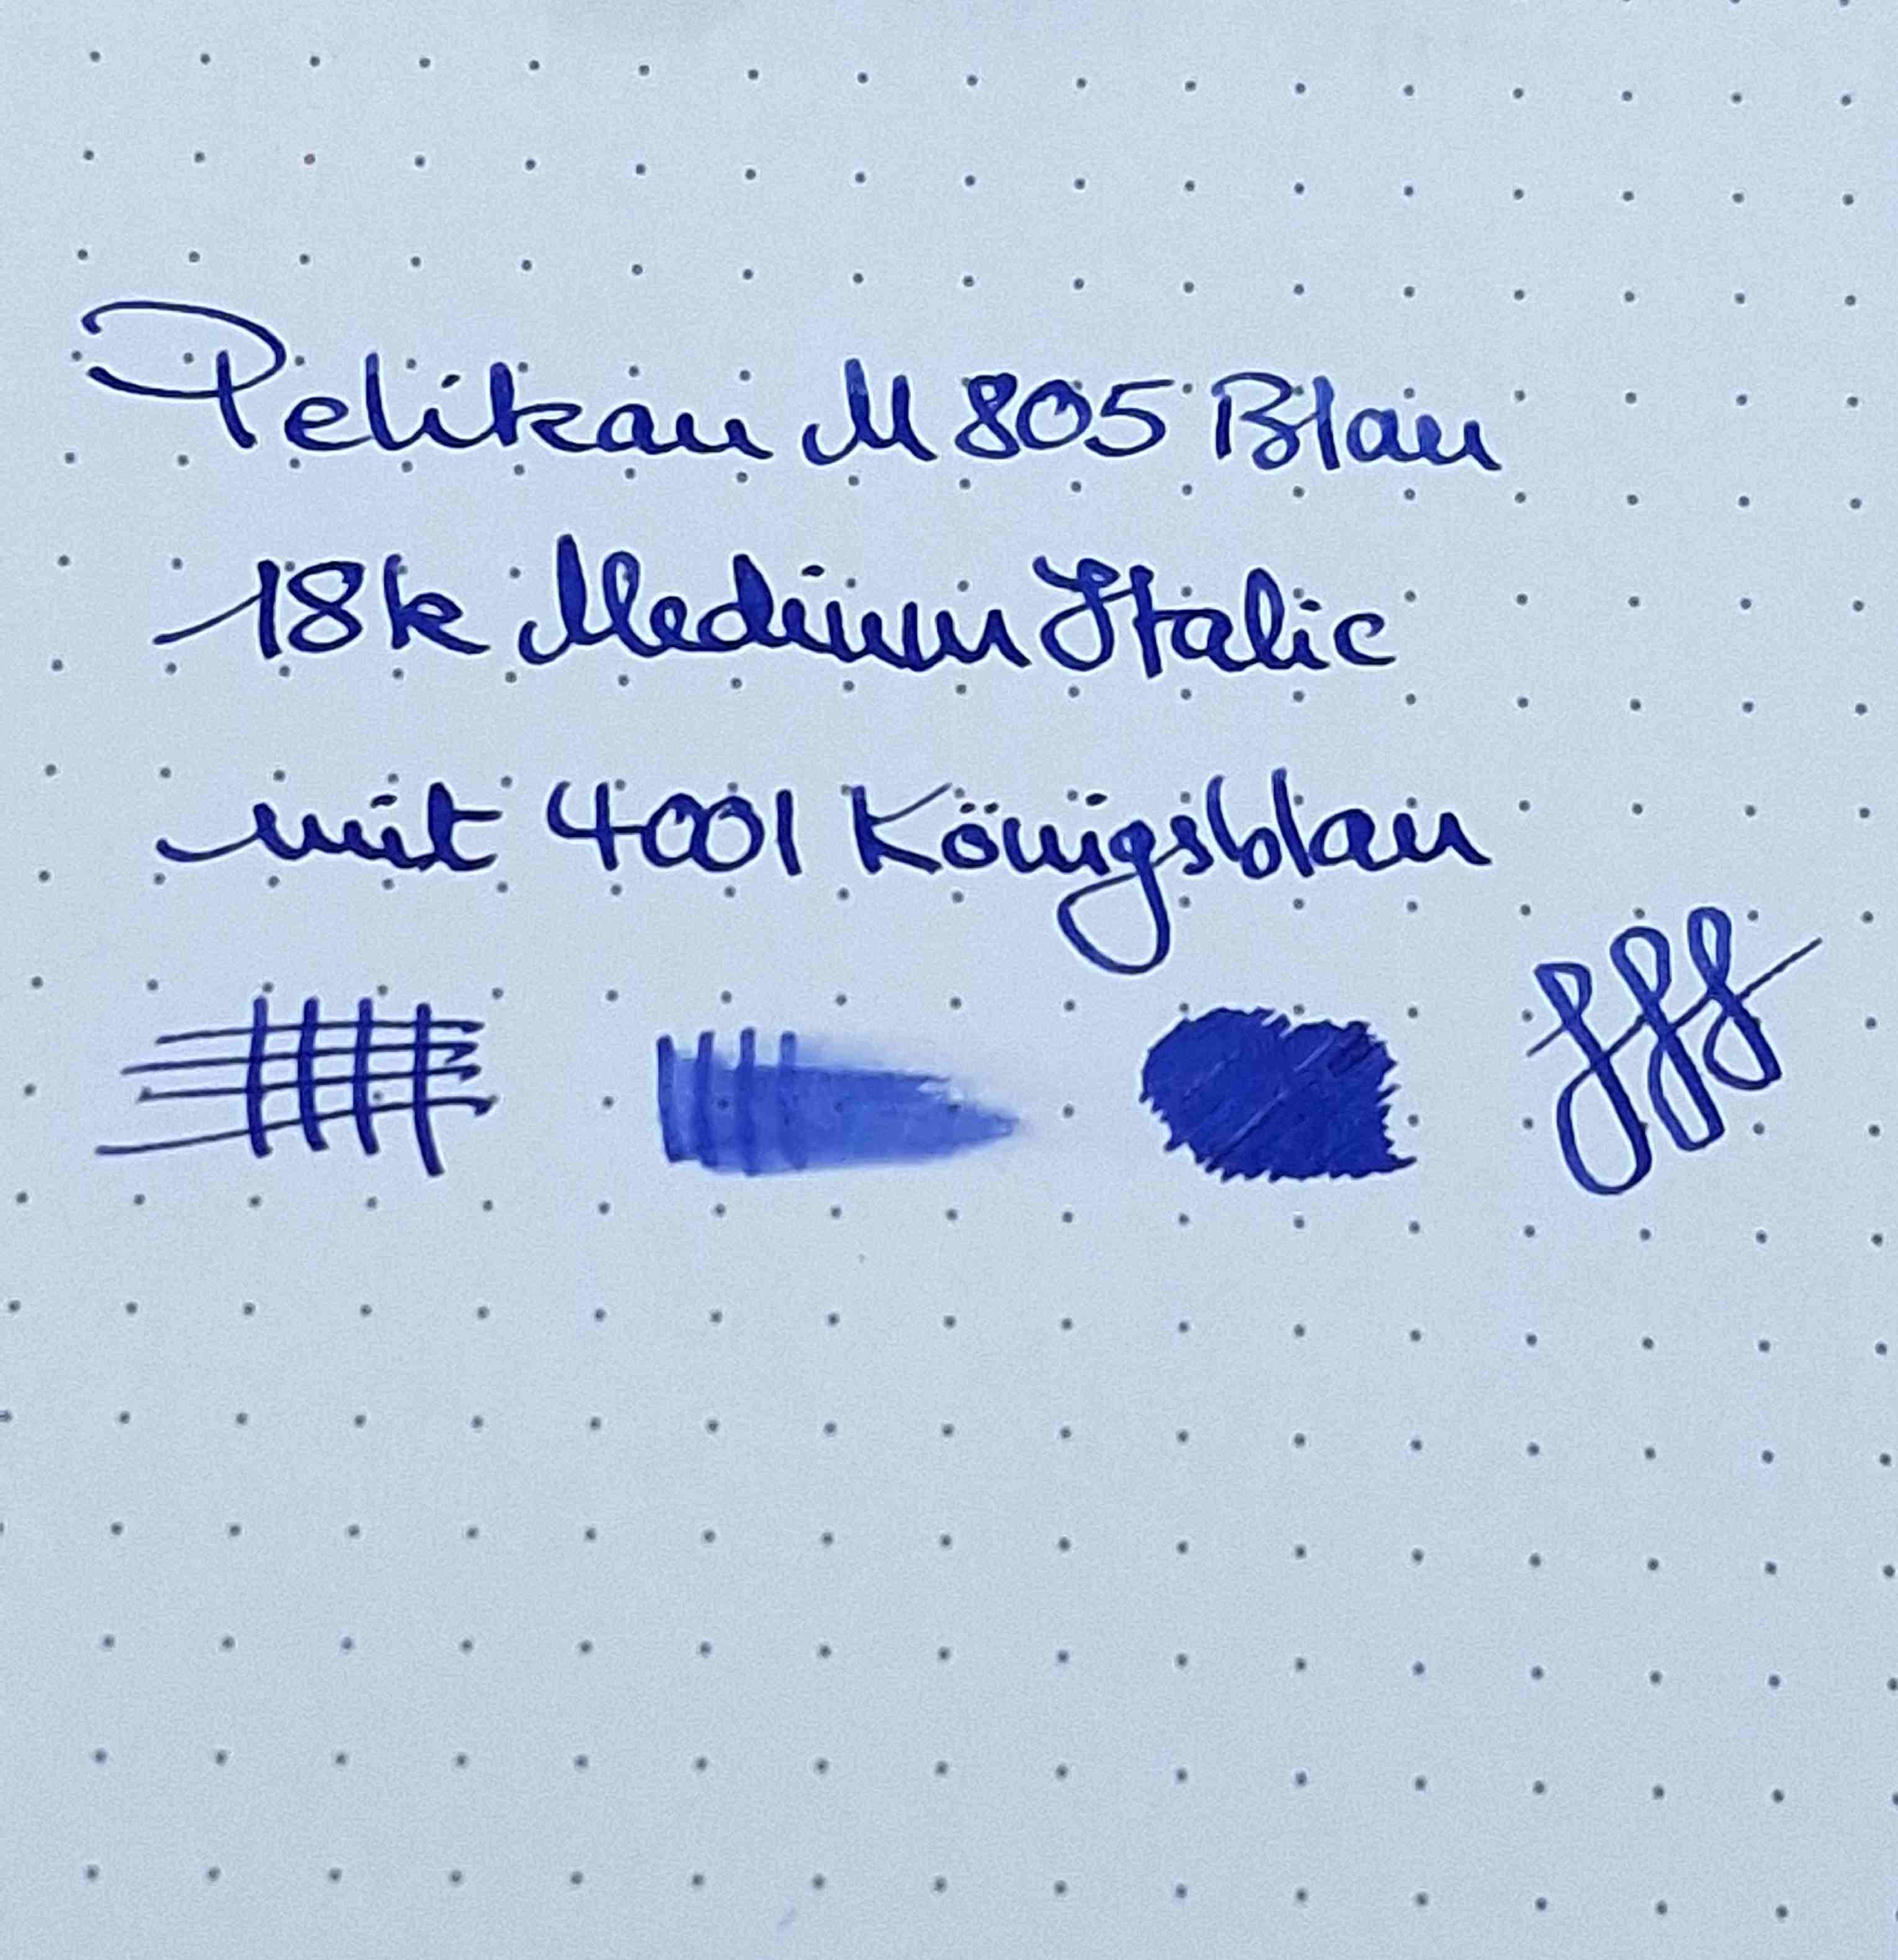 Pelikan M805 Blau
18k Medium Italic
mit 4001 Königsblau